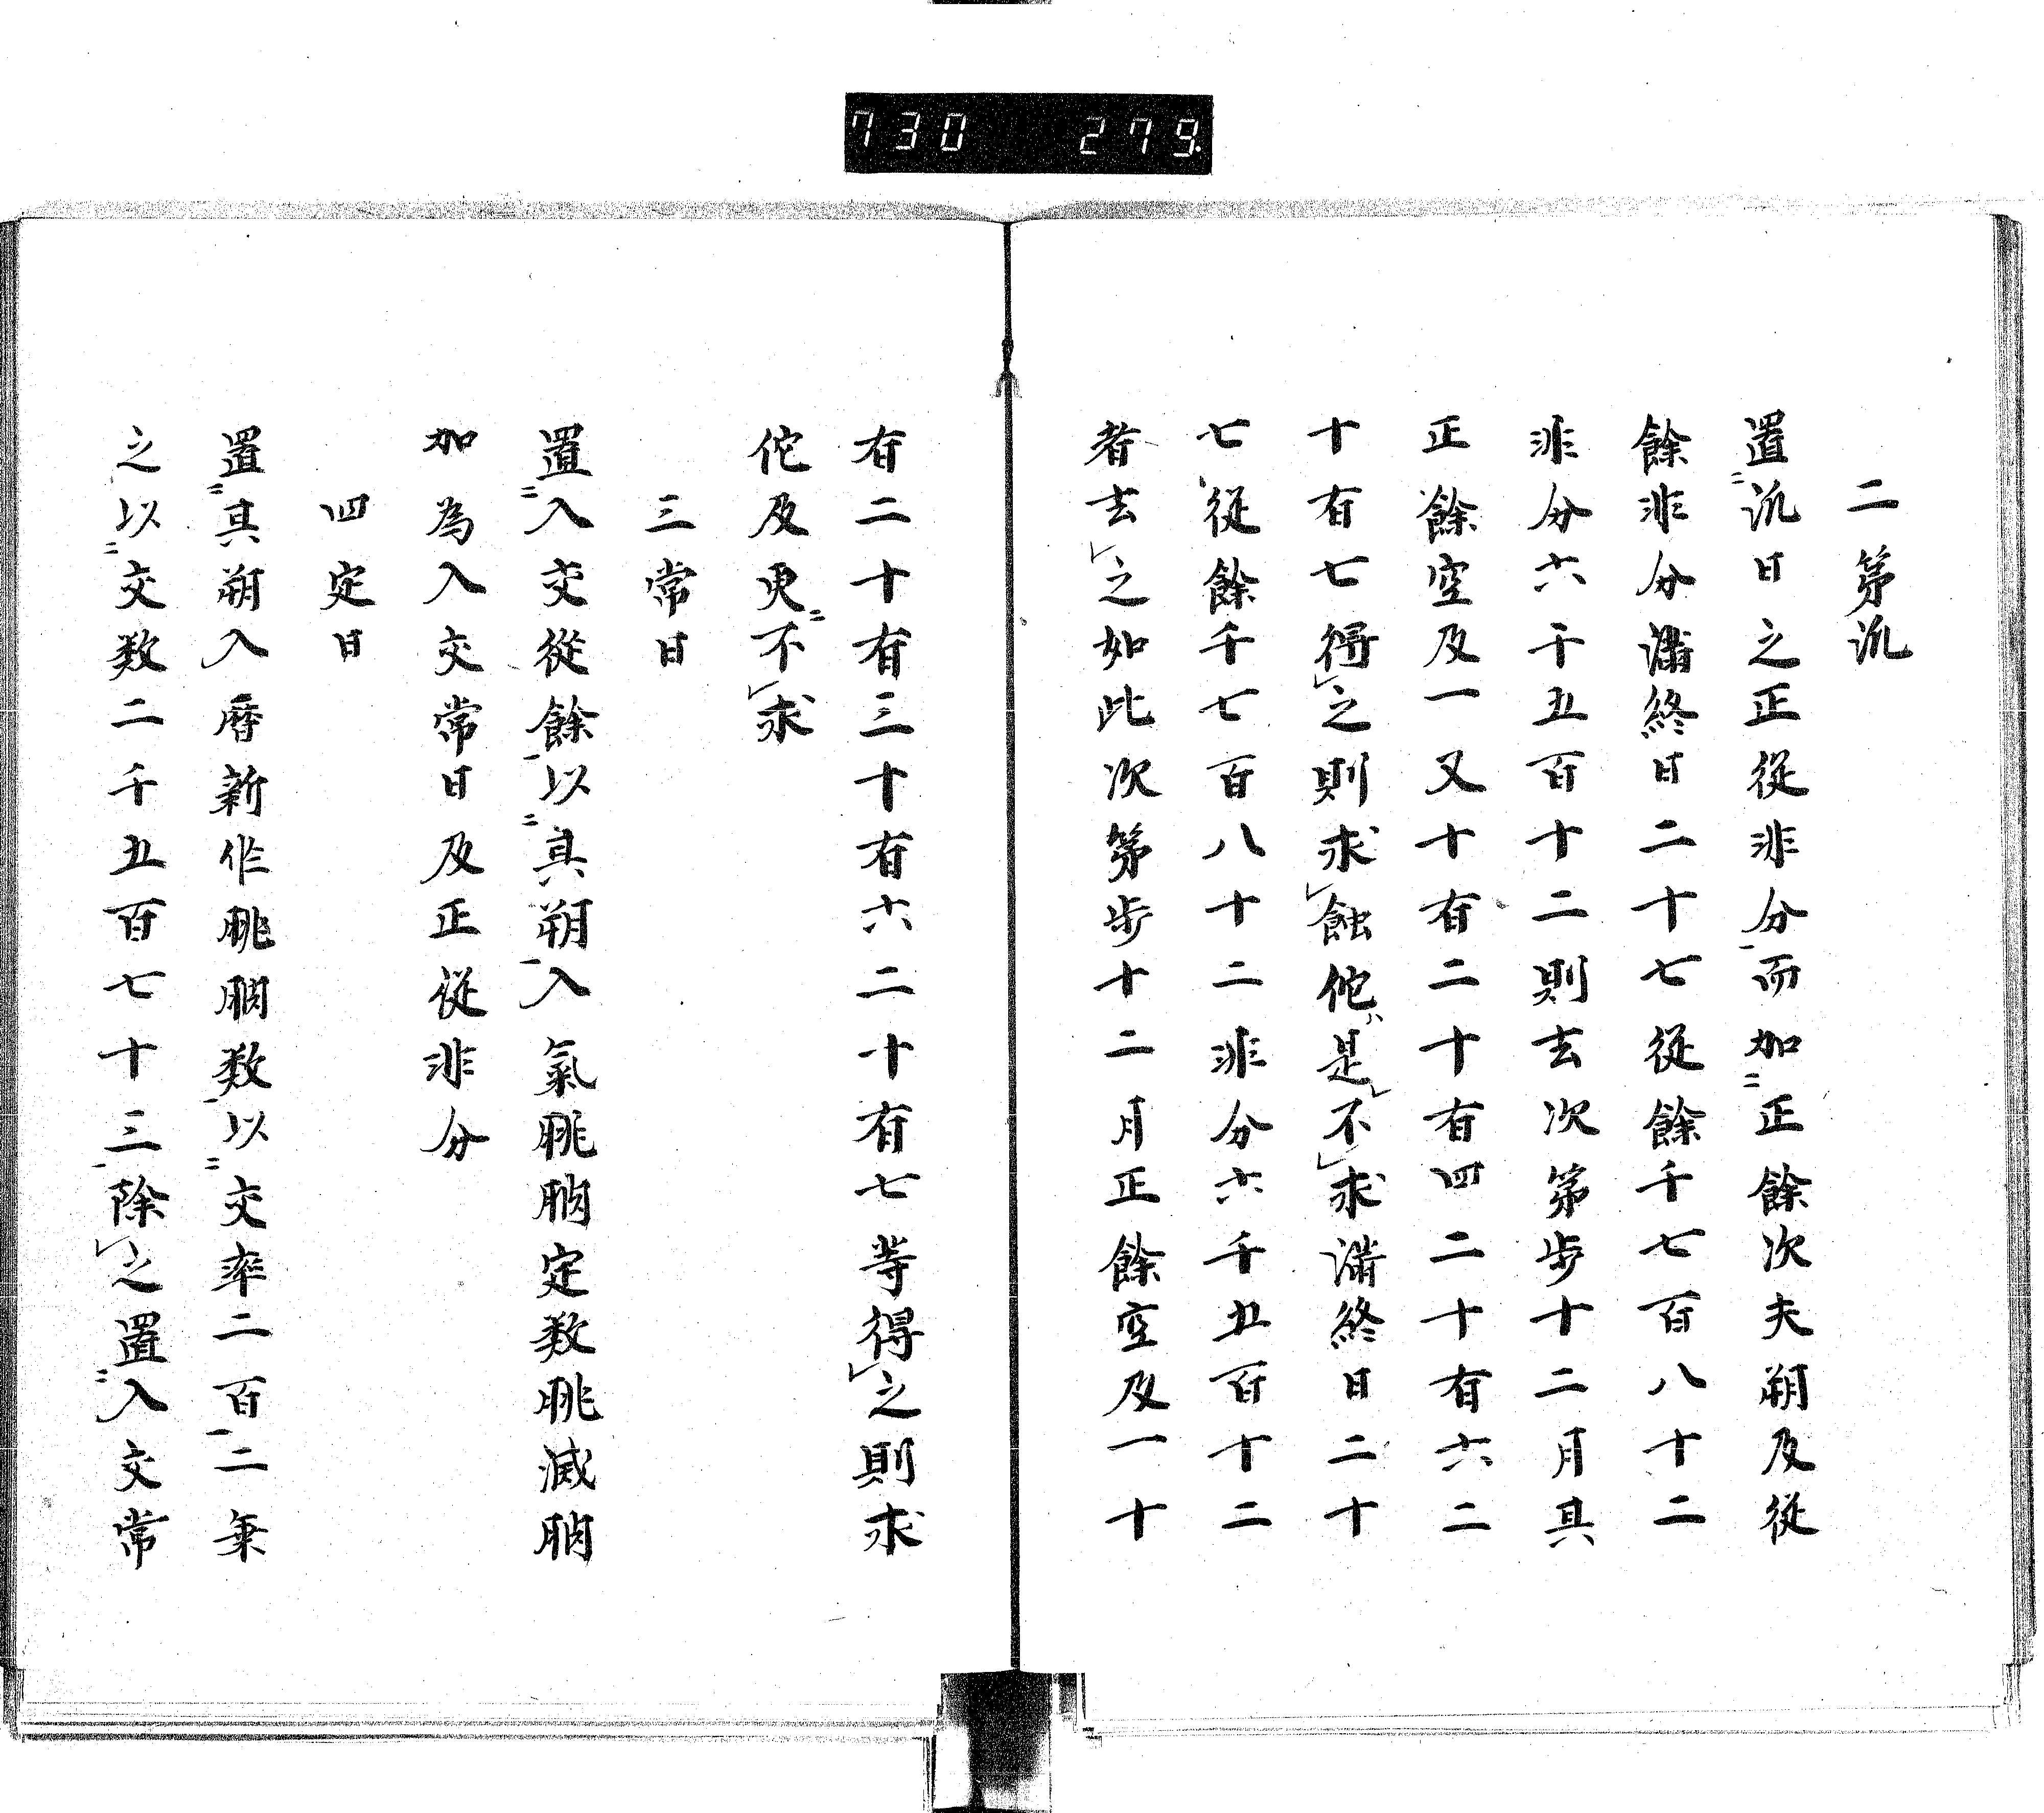 730 279
二第汎
置汎日之正從非分而加正餘次夫朔及從
餘非分滿終日二十七從餘千七百八十二
非分六千五百十二則去次第步十二月具
正餘空及一又十有二十有四二十有六二
十有七得之則求蝕他ハ是不求滿終日二十
七從餘千七百八十二非分六千五百十二
者去之如此次第步十二月正餘空及一十
有二十有三十有六二十有七等得之則求
佗及更不求
三常日
置入交從餘以其朔入氣朓朒定数朓減朒
加為入交常日及正從非分
四定日
置其朔入曆新作朓朒数以交率二百二乗
之以交数二千五百七十三除之置入交常